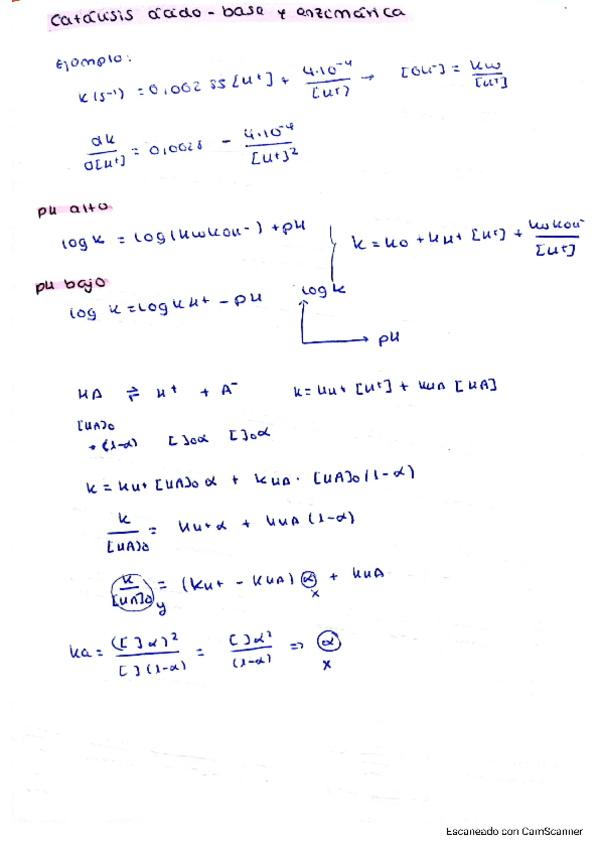 Catálisis ácido-base y enzimática
Ejemplo:
k(s⁻¹) = 0,00255[H⁺] + 4·10⁻⁴/[H⁺] → [OH⁻] = kw/[H⁺]
dk/d[H⁺] = 0,0028 - 4·10⁻⁴/[H⁺]²
pH alto
log k = log(kwkOH⁻) + pH
k = k0 + kH⁺ [H⁺] + kwkOH⁻/[H⁺]
pH bajo
log k = log kH⁺ - pH
log k
pH
HA ⇌ H⁺ + A⁻ k = kH⁺ [H⁺] + kHA [HA]
[HA]0
·(1-α) [ ]0α [ ]0α
k = kH⁺ [HA]0 α + kHA · [HA]0(1-α)
k/[HA]0 = kH⁺α + kHA (1-α)
k/[HA]0 = (kH⁺ - kHA) α + kHA
y x
ka = ([ ]α)²/[ ](1-α) = [ ]α²/(1-α) => α
x
Escaneado con CamScanner